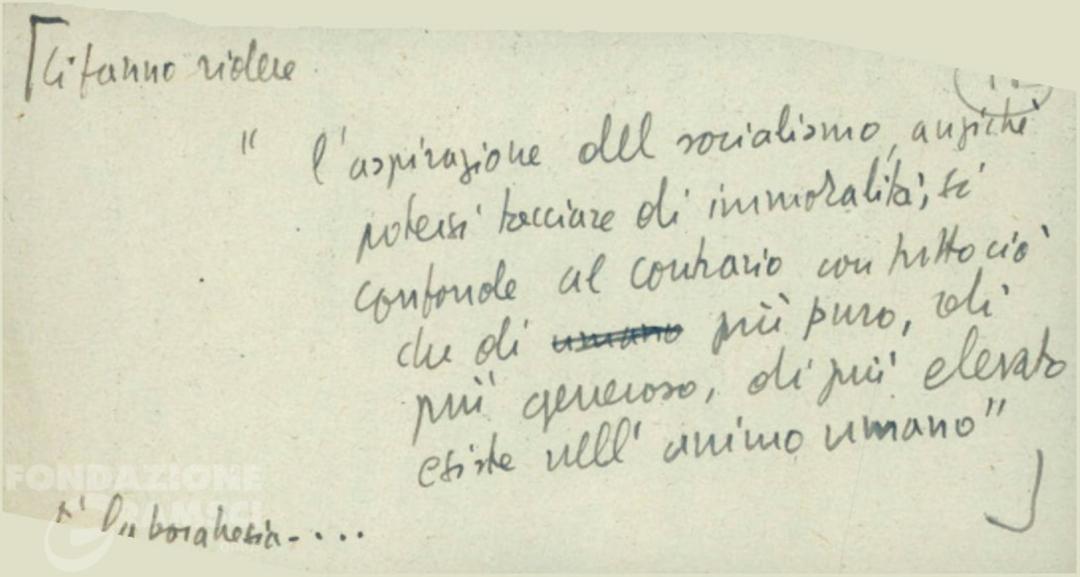 Ci fanno ridere
" l'aspirazione del socialismo, anziché
potersi tacciare di immoralità, si
confonde al contrario con tutto ciò
che di umano più puro, di
più generoso, di più elevato
esiste nell'animo umano"
FONDAZIONE
GRAMSCI
la borghesia - . . . .